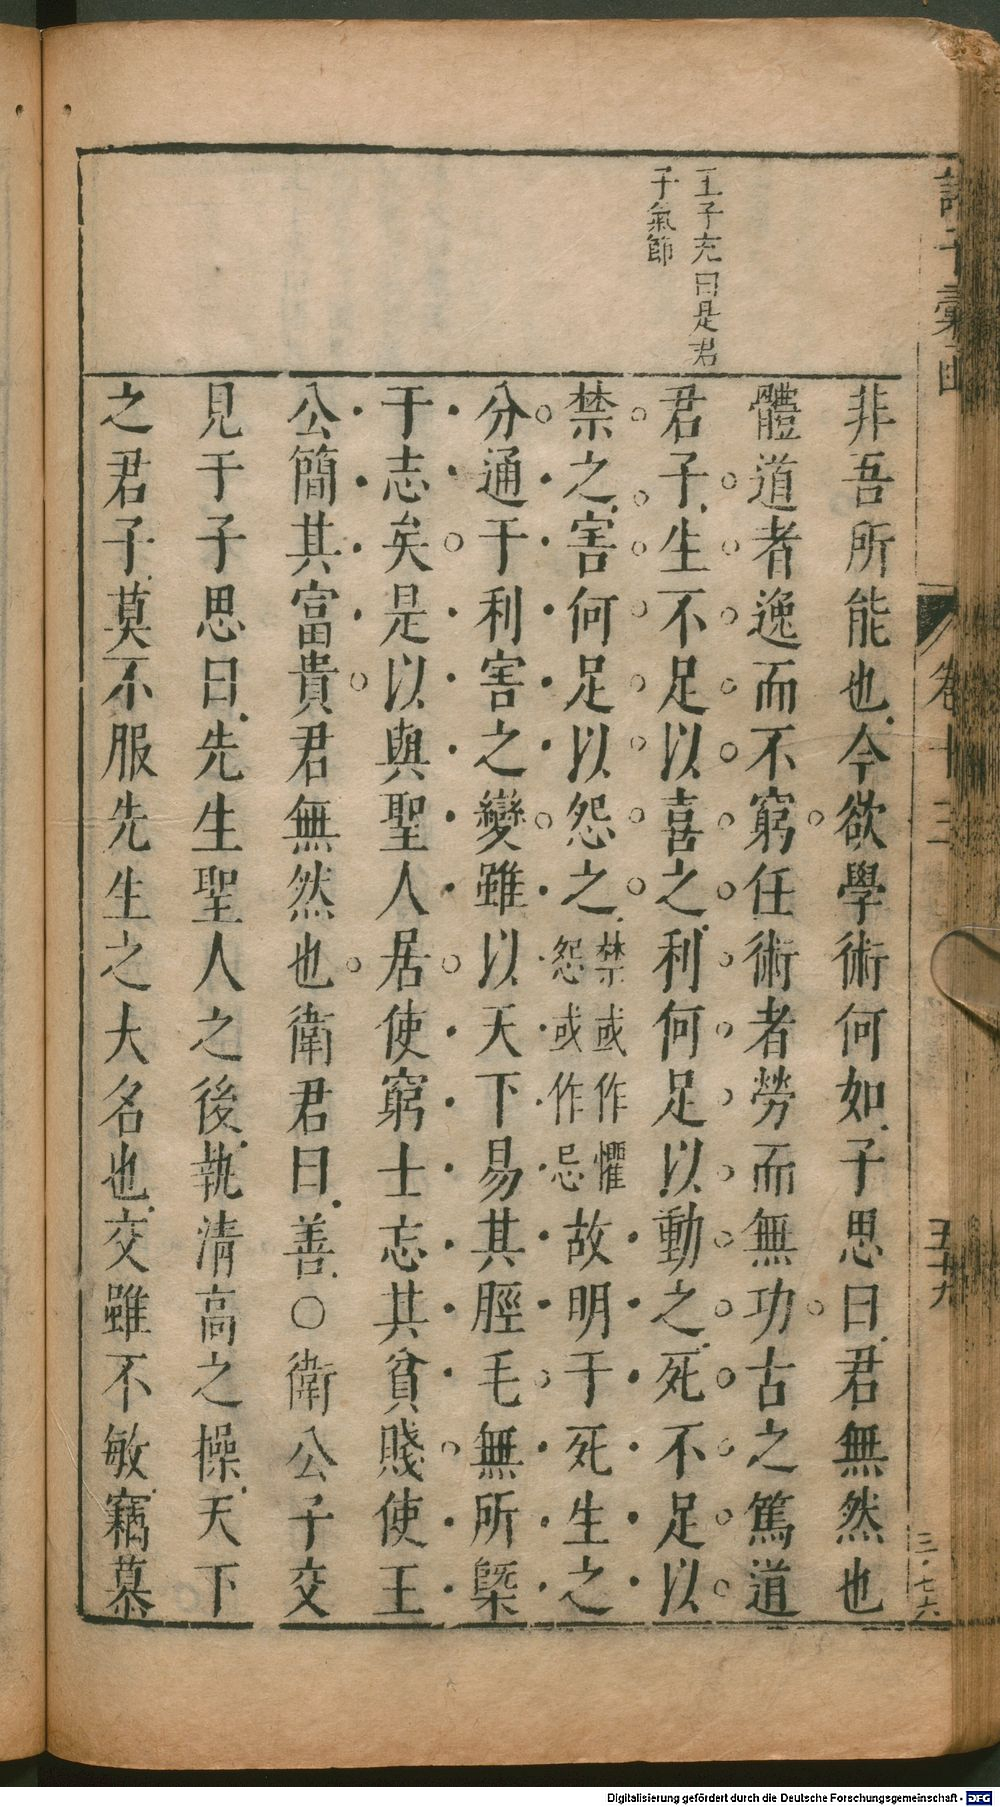 諸子彙函
卷十三
五十九
三·七六
王子充曰是君
子氣節
非吾所能也今欲學術何如子思曰君無然也
體道者逸而不窮○任術者勞而無功○古之篤道
君子○生不足以喜之利何足以動之死不足以
禁之害何足以怨之禁或作懼怨或作忌故明于死生之
分通于利害之變雖以天下易其脛毛無所槩
于志矣是以與聖人居使窮士忘其貧賤使王
公簡其富貴君無然也衛君曰善○衛公子交
見于子思曰先生聖人之後執清高之操天下
之君子莫不服先生之大名也交雖不敏竊慕
Digitalisierung gefördert durch die Deutsche Forschungsgemeinschaft - DFG